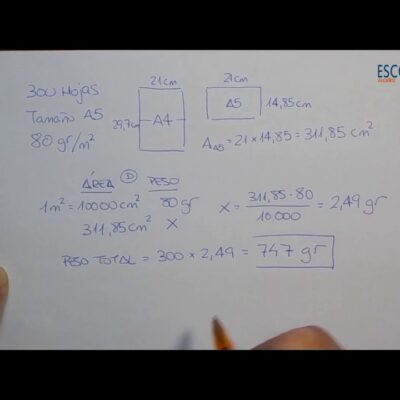 300 Hojas
Tamaño A5
80 gr/m²
21cm
29,7cm
A4
21cm
A5
14,85cm
A_A5 = 21 × 14,85 = 311,85 cm²
ÁREA D PESO
1m² = 10000 cm² 80 gr
311,85 cm² X
X = 311,85 · 80 / 10.000 = 2,49 gr
PESO TOTAL = 300 × 2,49 = 747 gr
ESCO